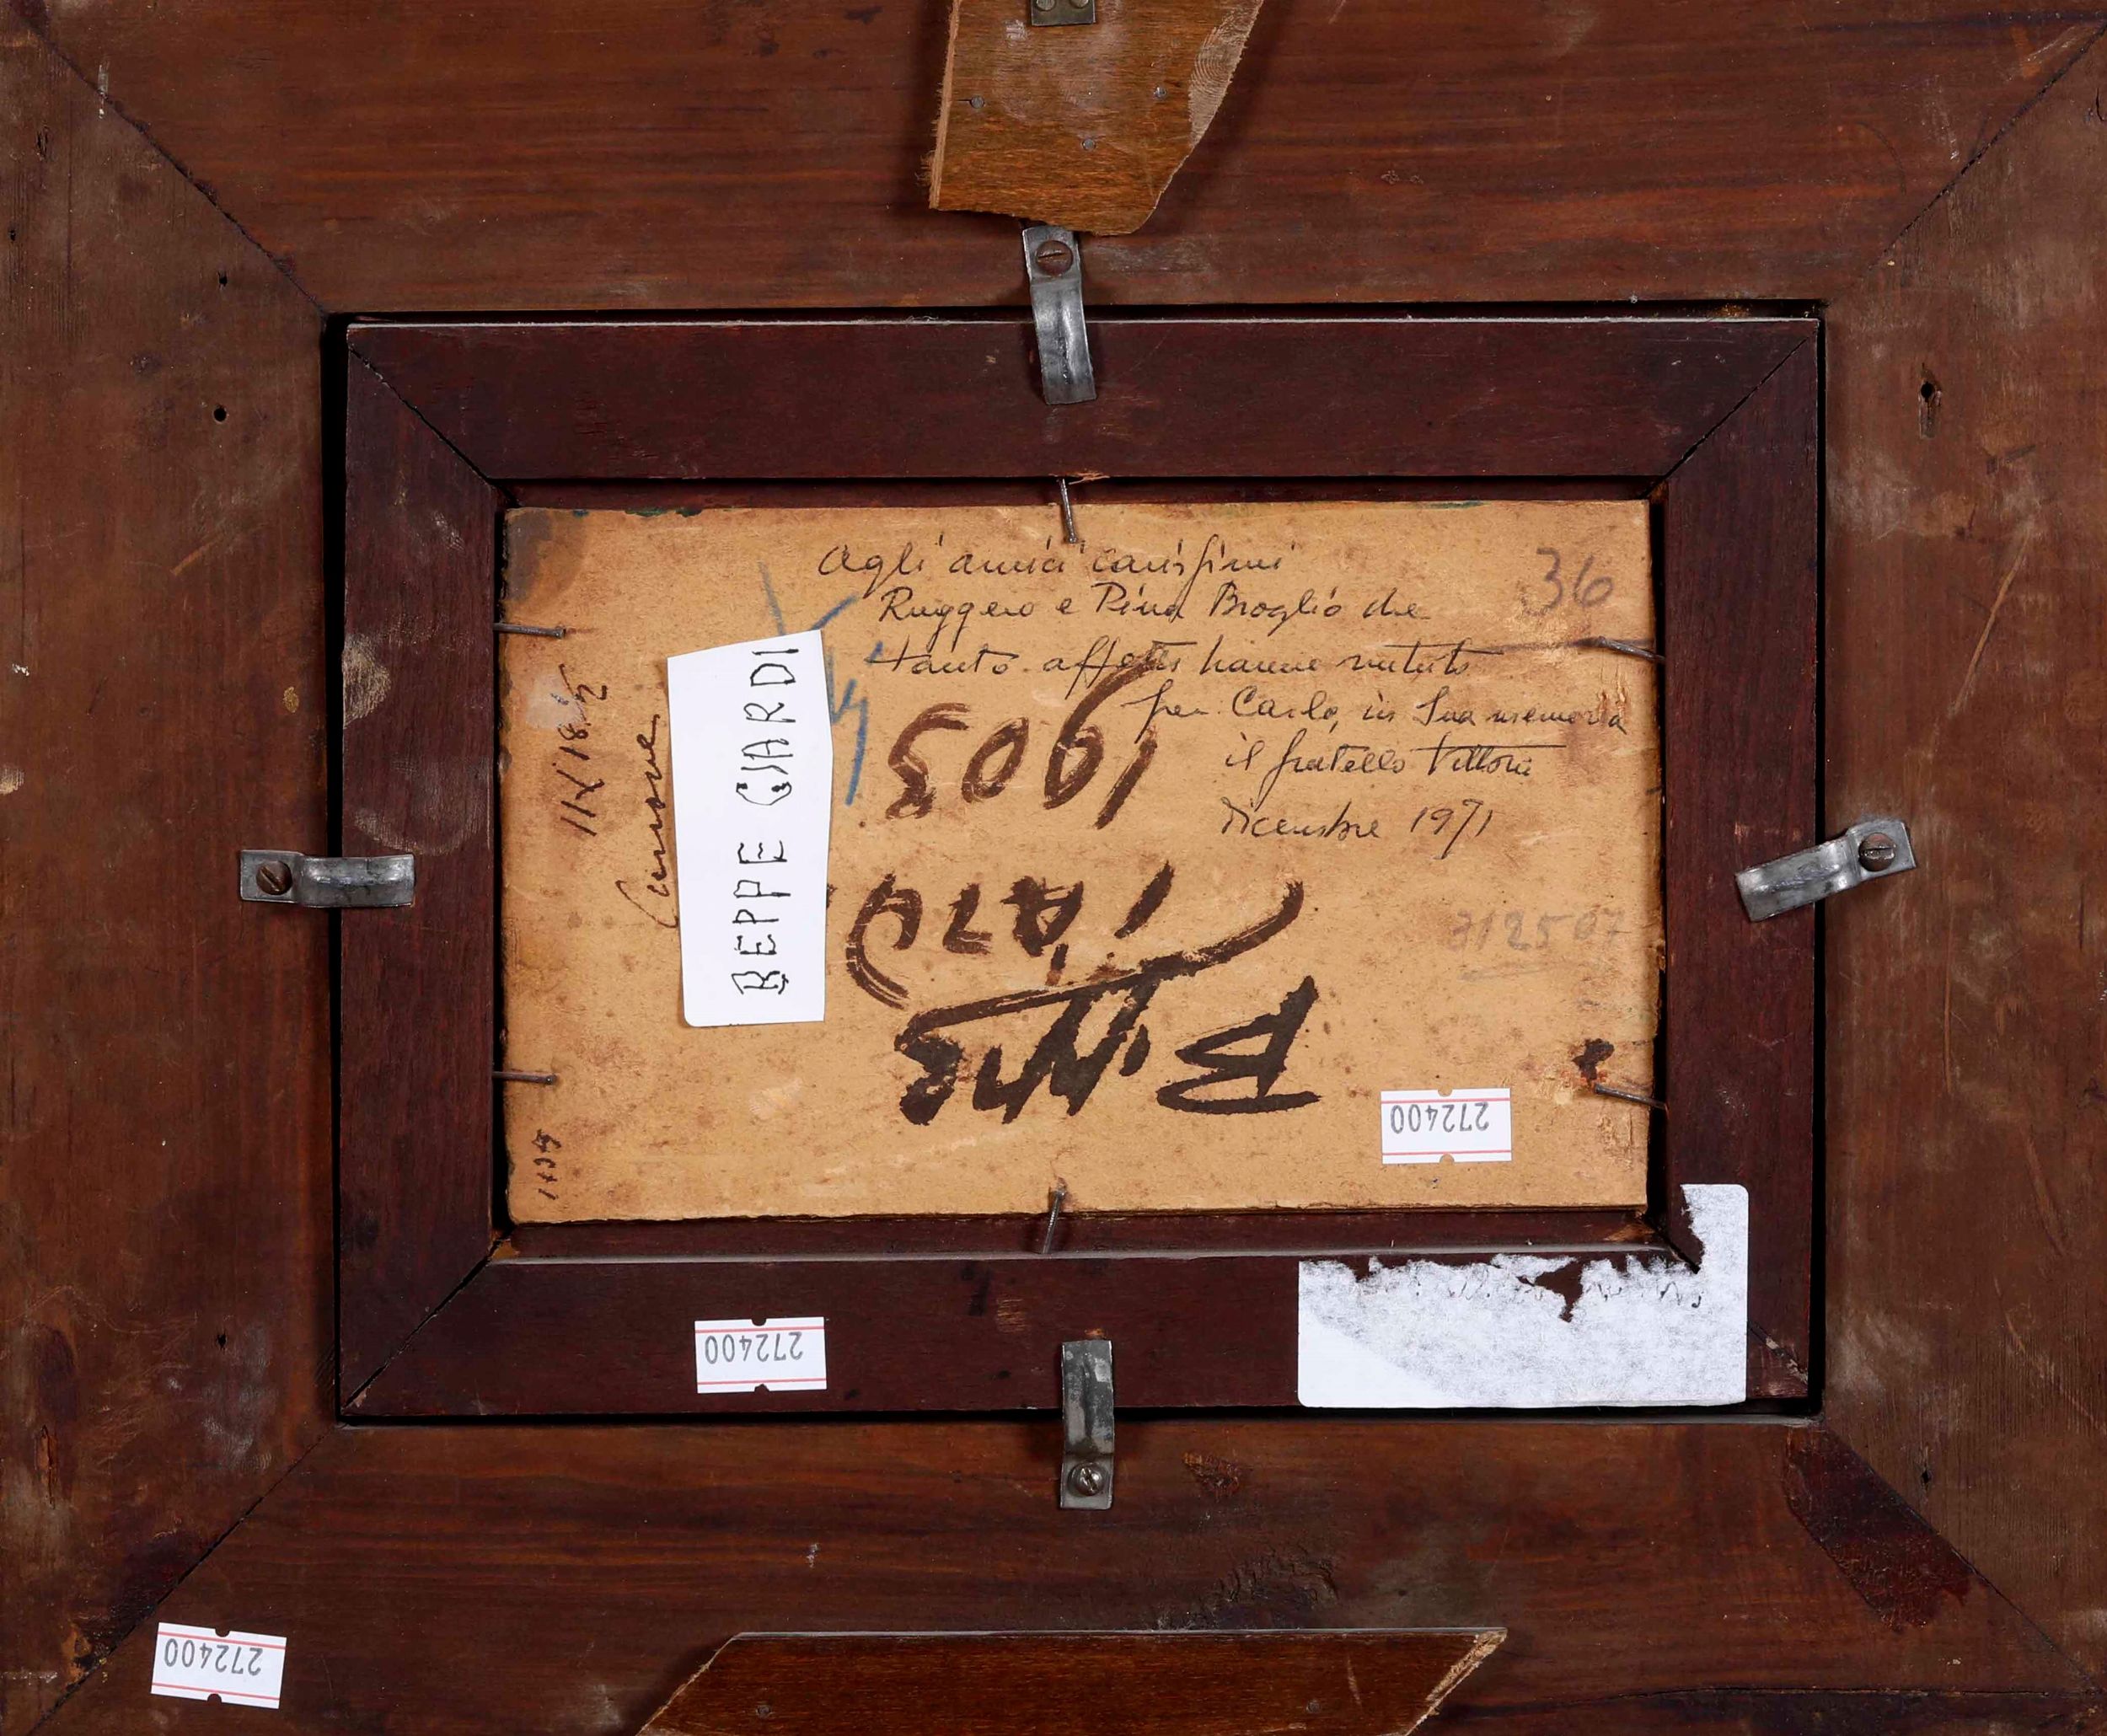 Agli amici carissimi
Ruggero e Pina Broglio che
tanto affetto hanno nutrito
per Carlo, in Sua memoria
il fratello Vittorio
Dicembre 1971
36
BEPPE CIARDI
11x18½
1903
Beppe
312507
272400
272400
272400